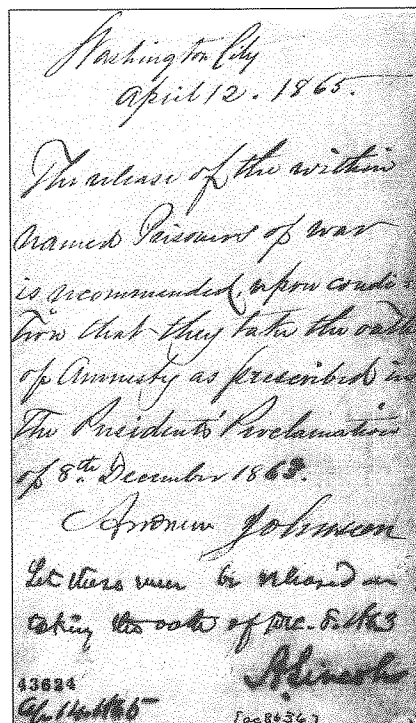 Washington City
April 12. 1865.
The release of the within
named Prisoners of war
is recommended, upon condi-
tion that they take the oath
of Amnesty as prescribed in
the Presidents' Proclamation
of 8th December 1863.
Andrew Johnson
Let these men be released on
taking the oath of Dec. 8. 1863
A. Lincoln
43624
Ap. 14. 1865